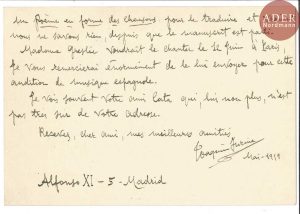 ADER
Nordmann
un Poème en forme des chansons pour le traduire et
nous ne savons rien depuis que le manuscrit est parti.
Madame Greslé voudrait le chanter le 21 Juin à Paris,
Je vous remercierai énormément de le lui envoyer pour cette
audition de musique espagnole.
Je vois souvent votre ami Cata qui lui non plus, n'est
pas très sûr de votre adresse.
Recevez, cher ami, mes meilleurs amitiés
Joaquin Turina
Mai-1919
Alfonso XI - 5 - Madrid